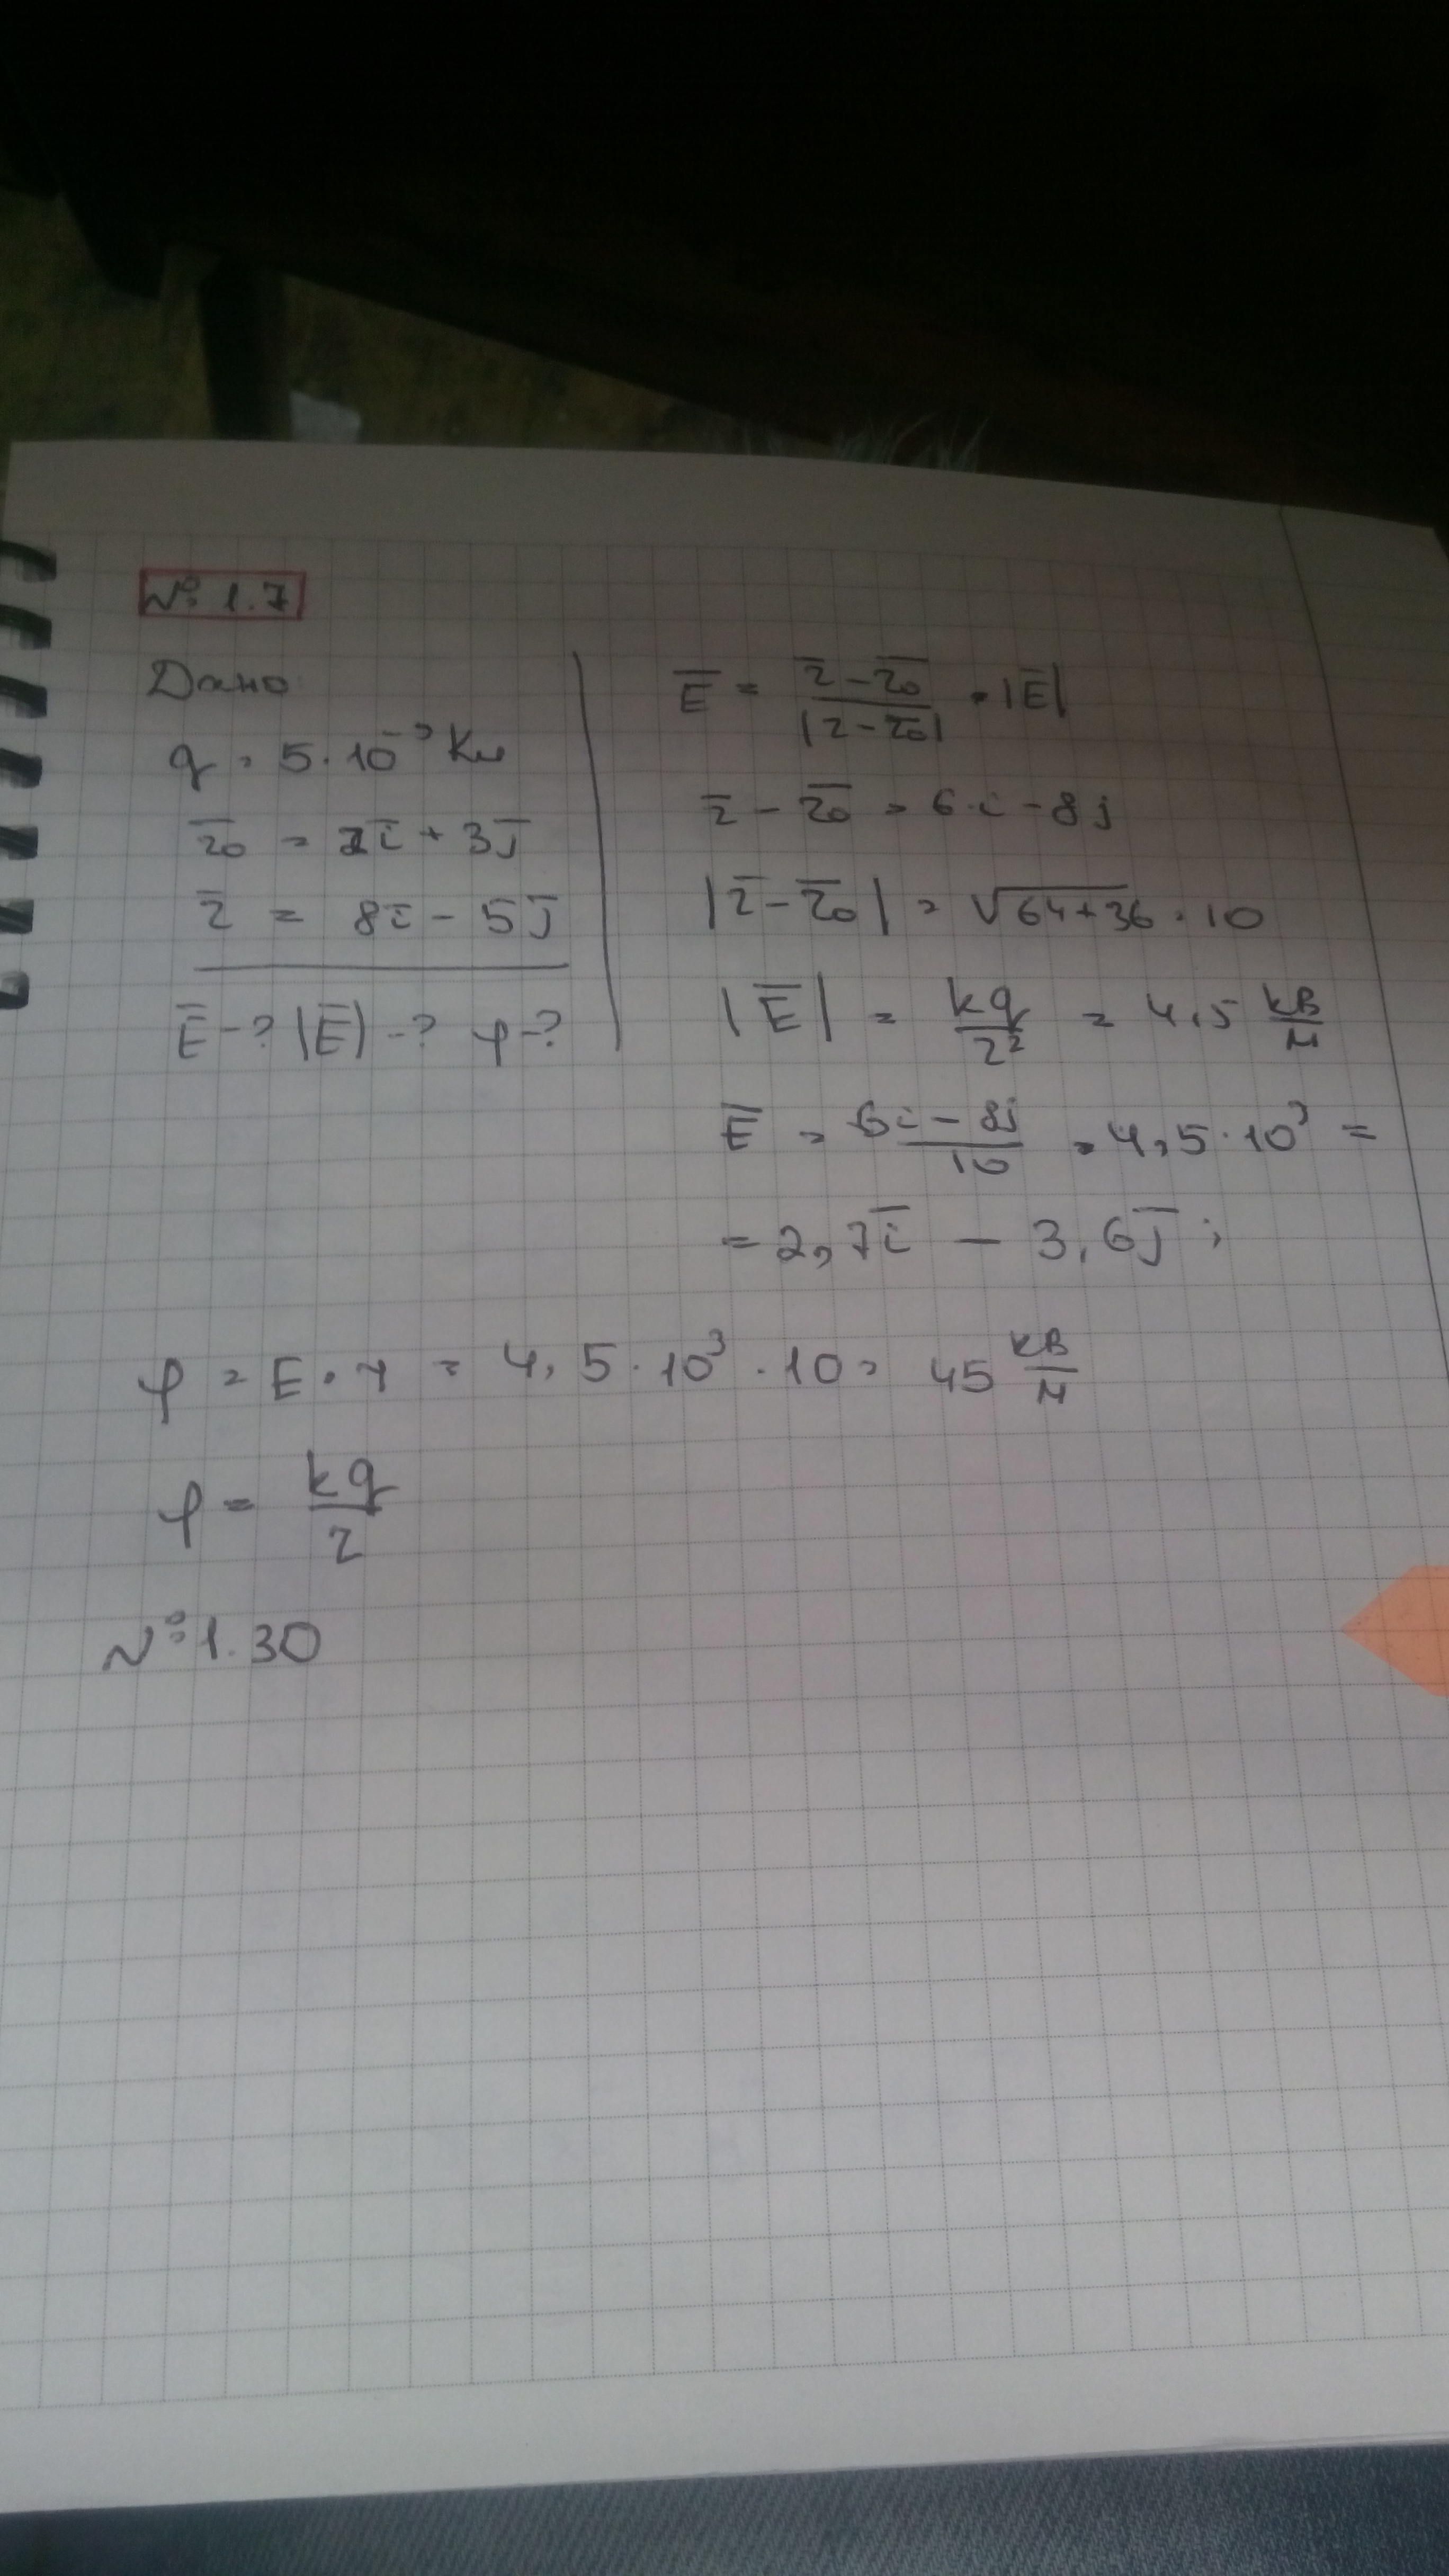 № 1.7
Дано
q = 5·10⁻⁵ Кл
r̄₀ = 2ī + 3j̄
r̄ = 8ī - 5j̄
Ē -? |Ē| -? φ-?
Ē = (r̄ - r̄₀)/|r - r̄₀| · |Ē|
r̄ - r̄₀ = 6·i - 8j
|r̄ - r̄₀| = √(64+36) = 10
|Ē| = kq/r² = 4,5 кВ/м
Ē = (6i - 8j)/10 · 4,5·10³ =
= 2,7ī - 3,6j̄ ;
φ = E·r = 4,5·10³·10 = 45 кВ/м
φ = kq/r
№ 1.30